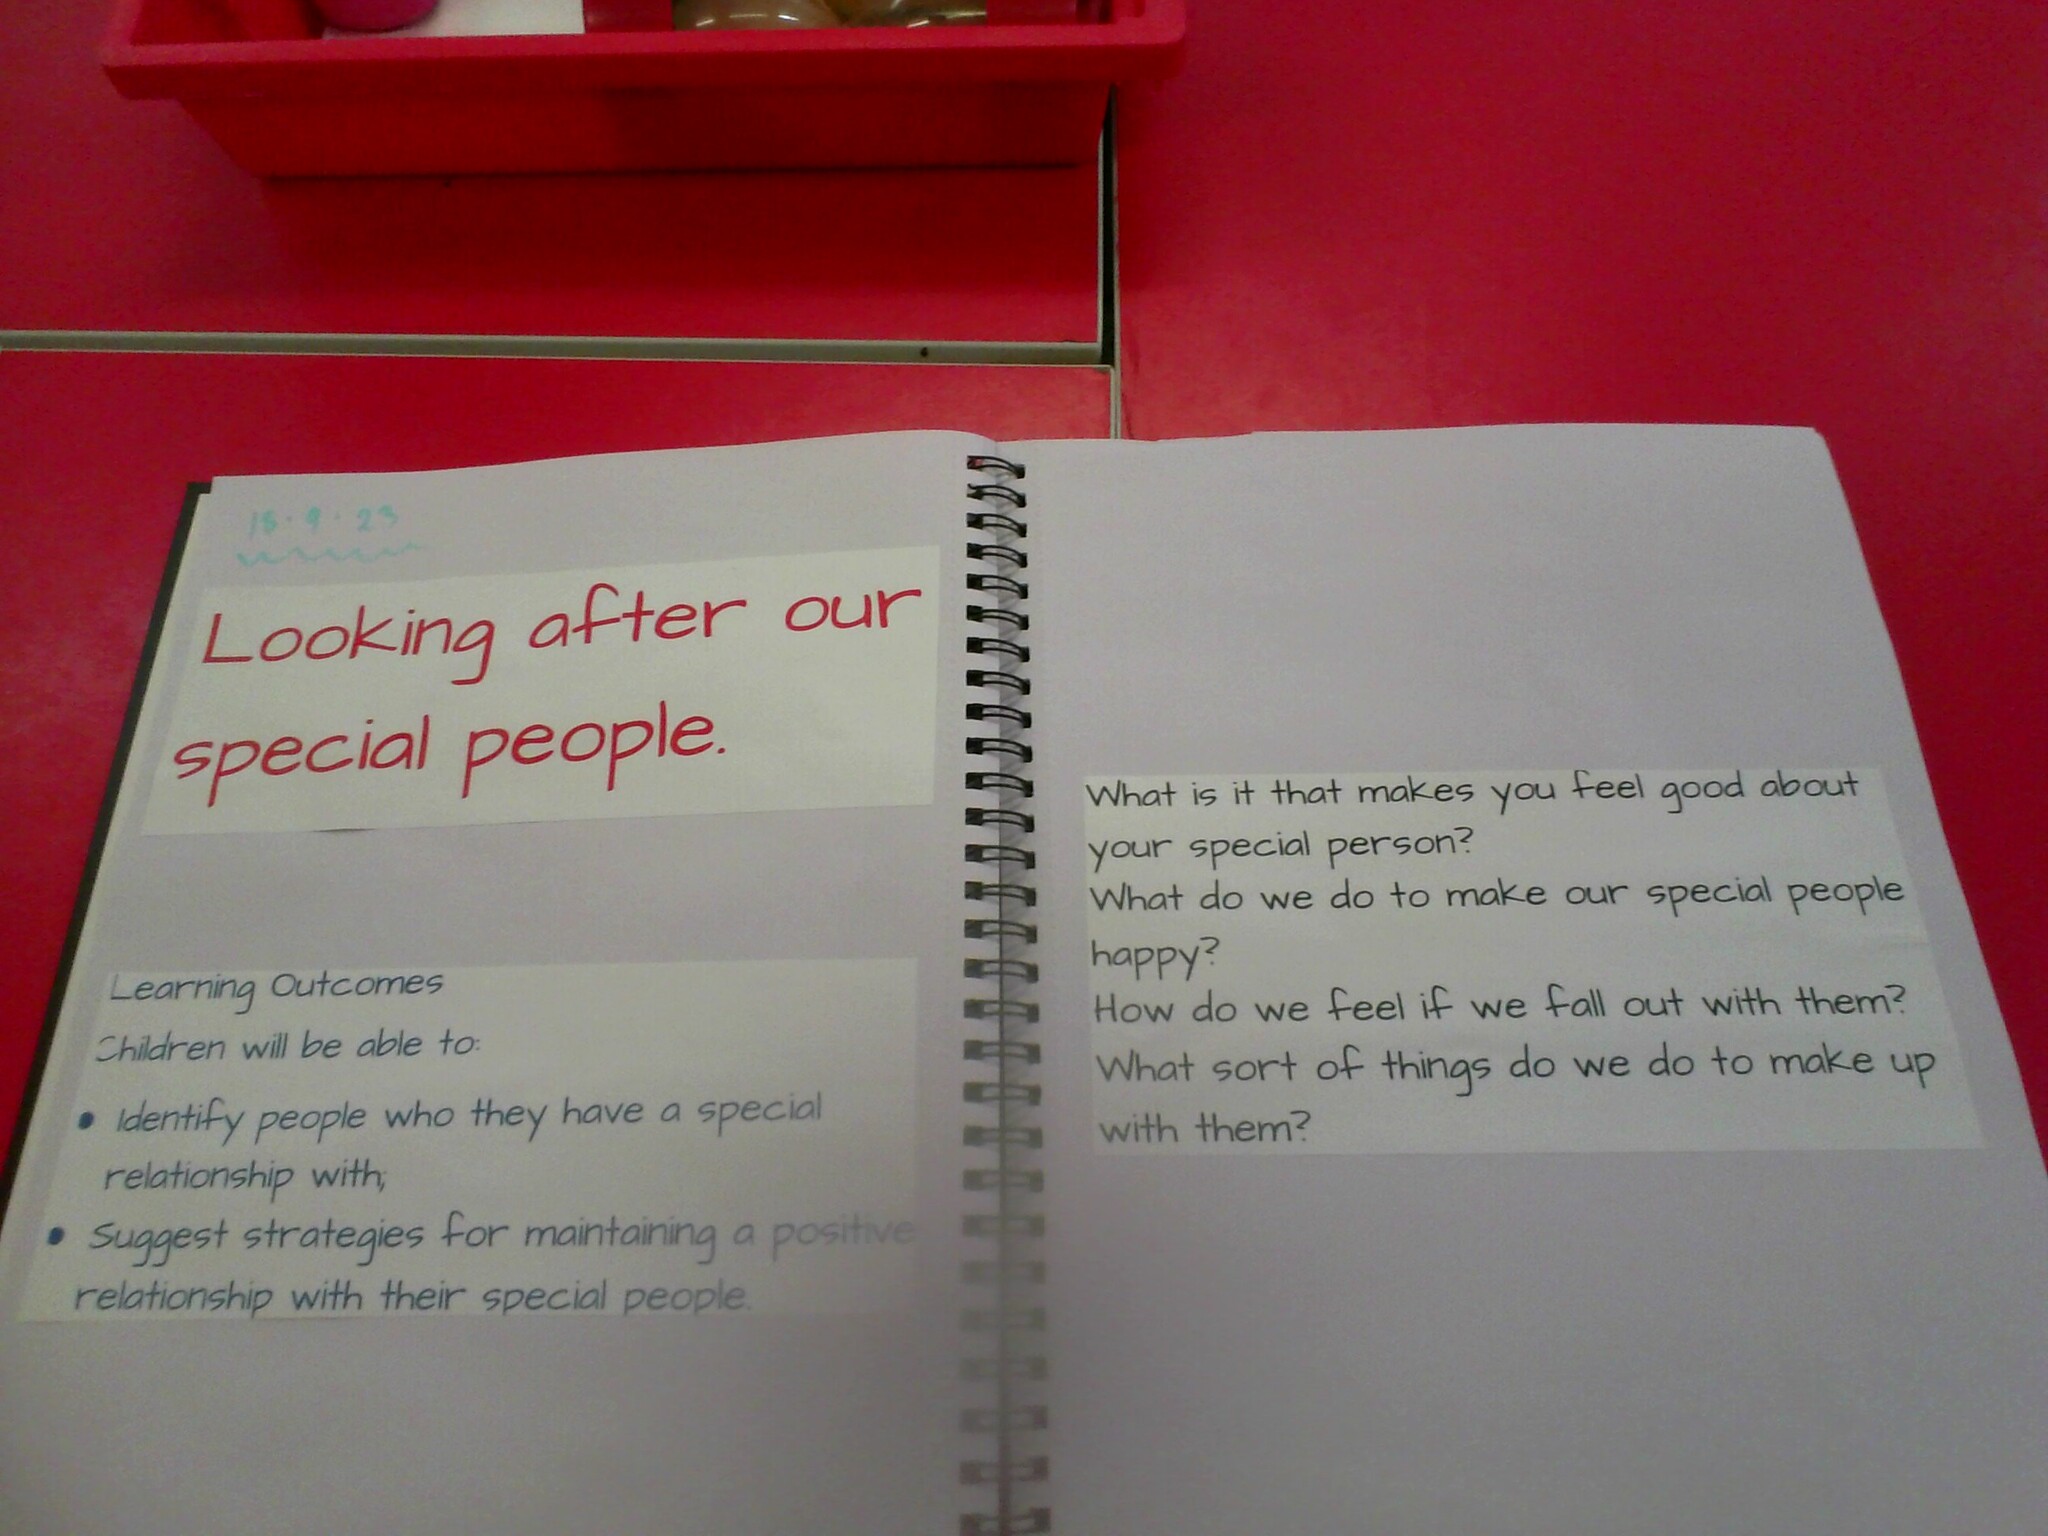 18.9.23
Looking after our
special people.
Learning Outcomes
Children will be able to:
• Identify people who they have a special
relationship with;
• Suggest strategies for maintaining a positive
relationship with their special people.
What is it that makes you feel good about
your special person?
What do we do to make our special people
happy?
How do we feel if we fall out with them?
What sort of things do we do to make up
with them?